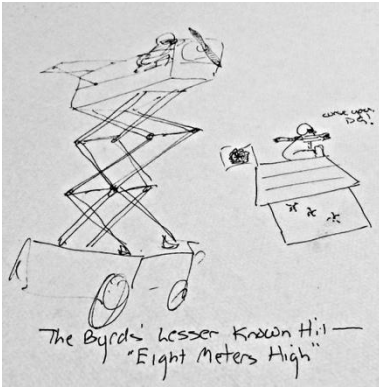 curse you
DG!
The Byrds' Lesser Known Hit —
"Eight Meters High"